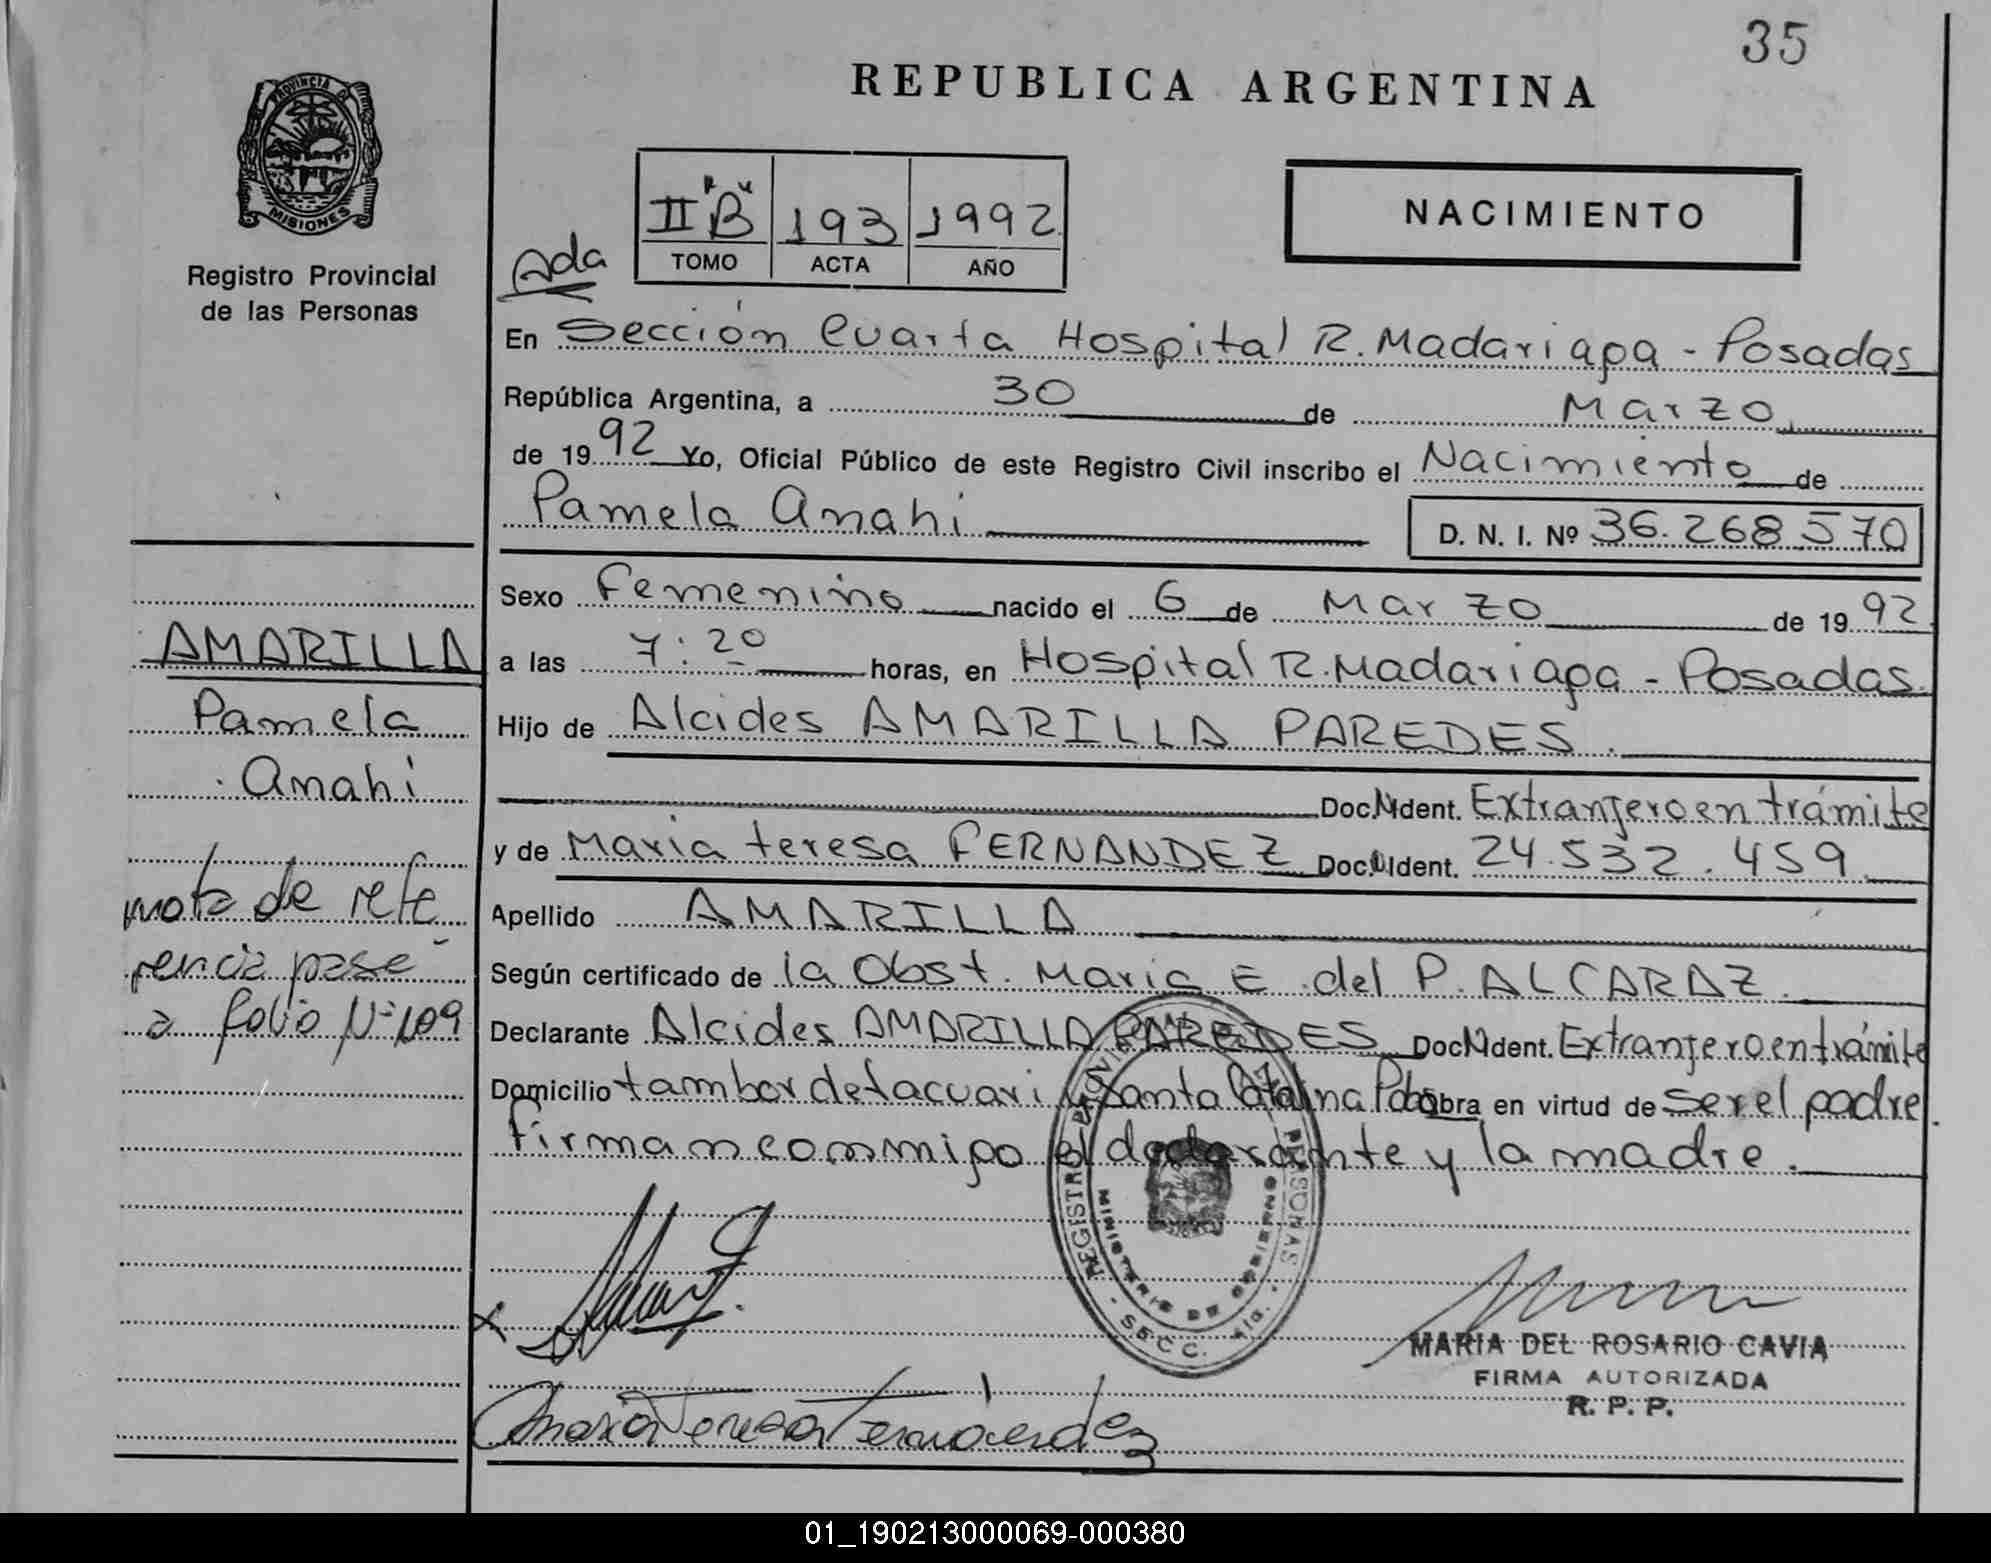 35
REPUBLICA ARGENTINA
PROVINCIA DE
MISIONES
Registro Provincial
de las Personas
NACIMIENTO
II "B" 193 1992
TOMO ACTA AÑO
Ada
En Sección Cuarta Hospital R. Madariaga - Posadas
República Argentina, a 30 de Marzo
de 1992 Yo, Oficial Público de este Registro Civil inscribo el Nacimiento de
Pamela Anahi D. N. I. Nº 36.268.570
Sexo Femenino nacido el 6 de Marzo de 1992
a las 7:20 horas, en Hospital R. Madariaga - Posadas
Hijo de Alcides AMARILLA PAREDES.
Doc. Ident. Extranjero en trámite
y de Maria teresa FERNANDEZ Doc. Ident. 24.532.459
Apellido AMARILLA
Según certificado de la Obst. Maria E. del P. ALCARAZ.
Declarante Alcides AMARILLA PAREDES Doc. Ident. Extranjero en trámite
Domicilio tambor de tacuari y Santa Catalina Pdas obra en virtud de ser el padre.
firman conmigo el declarante y la madre.
AMARILLA
Pamela
Anahi
nota de refe
rencia pase
a folio Nº 109
REGISTRO PROVINCIAL DE LAS PERSONAS
MINISTERIO DE GOBIERNO
SECC.
Maria Teresa Fernández
MARIA DEL ROSARIO CAVIA
FIRMA AUTORIZADA
R. P. P.
01_190213000069-000380